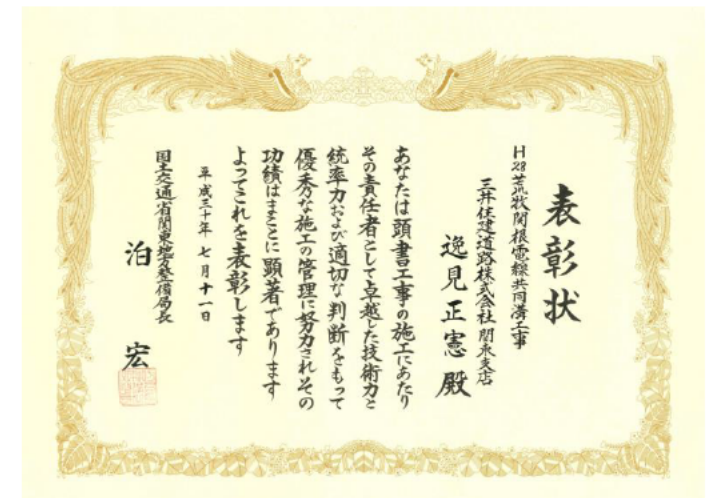 表彰状
H28荒牧関根電線共同溝工事
三井住建道路株式会社 関東支店
逸見正憲 殿
あなたは頭書工事の施工にあたり
その責任者として卓越した技術力と
統率力および適切な判断をもって
優秀な施工の管理に努力されその
功績はまことに顕著であります
よってこれを表彰します
平成三十年 七月十一日
国土交通省関東地方整備局長
泊 宏